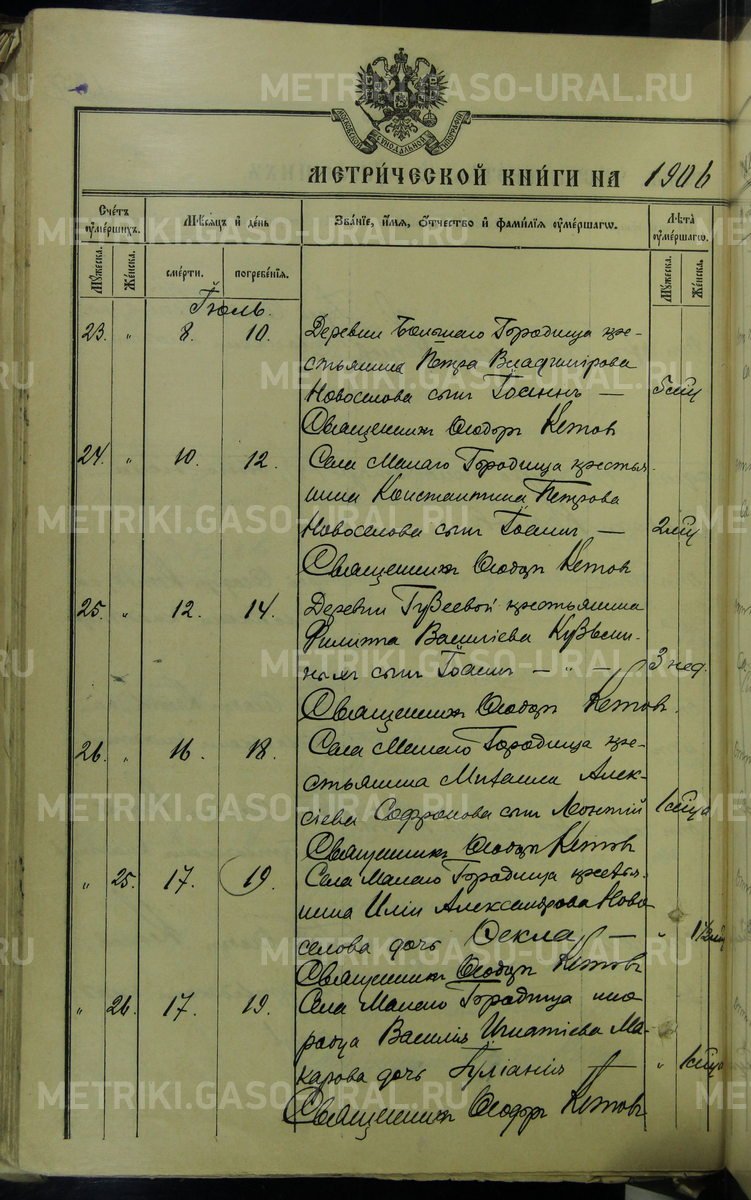 METRIKI.GASO-URAL.RU
МОСКОВСКОЙ СѴНОДАЛЬНОЙ ТИПОГРАФІИ
МЕТРИ́ЧЕСКОЙ КНИ́ГИ НА 1906
Сче́тъ ѹме́ршихъ.
Мѣ́сѧцъ и҆ де́нь
Зва́нїе, и҆́мѧ, ѻ҆́тчество и҆ фами́лїѧ ѹме́ршагѡ.
Лѣ́та ѹме́ршагѡ.
Мꙋ́жеска.
Же́нска.
сме́рти.
погребе́нїѧ.
Мꙋ́жеска.
Же́нска.
Іюль.
23. „ 8. 10. Деревни Большаго Городища кре-
стьянина Петра Владимірова
Новоселова сынъ Іоаннъ — 5 мѣс
Священникъ Ѳеодоръ Кетовъ
24. „ 10. 12. Села Малаго Городища крестья-
нина Константина Петрова
Новоселова сынъ Іоаннъ — 2 мѣс
Священникъ Ѳеодоръ Кетовъ
25. „ 12. 14. Деревни Гузеевой крестьянина
Филиппа Василіева Кузьми-
ныхъ сынъ Іоаннъ — „ — 3 нед.
Священникъ Ѳеодоръ Кетовъ.
26. „ 16. 18. Села Малаго Городища кре-
стьянина Михаила Алек-
сіева Софронова сынъ Леонтій 1 мѣсца
Священникъ Ѳеодоръ Кетовъ
„ 25. 17. 19. Села Малаго Городища крестья-
нина Иліи Александрова Ново-
селова дочь Ѳекла — „ 1½ мѣс
Священникъ Ѳеодоръ Кетовъ
„ 26. 17. 19. Села Малаго Городища ино-
родца Василія Игнатіева Ма-
карова дочь Іуліанія — „ 1 мѣсца
Священникъ Ѳеодоръ Кетовъ